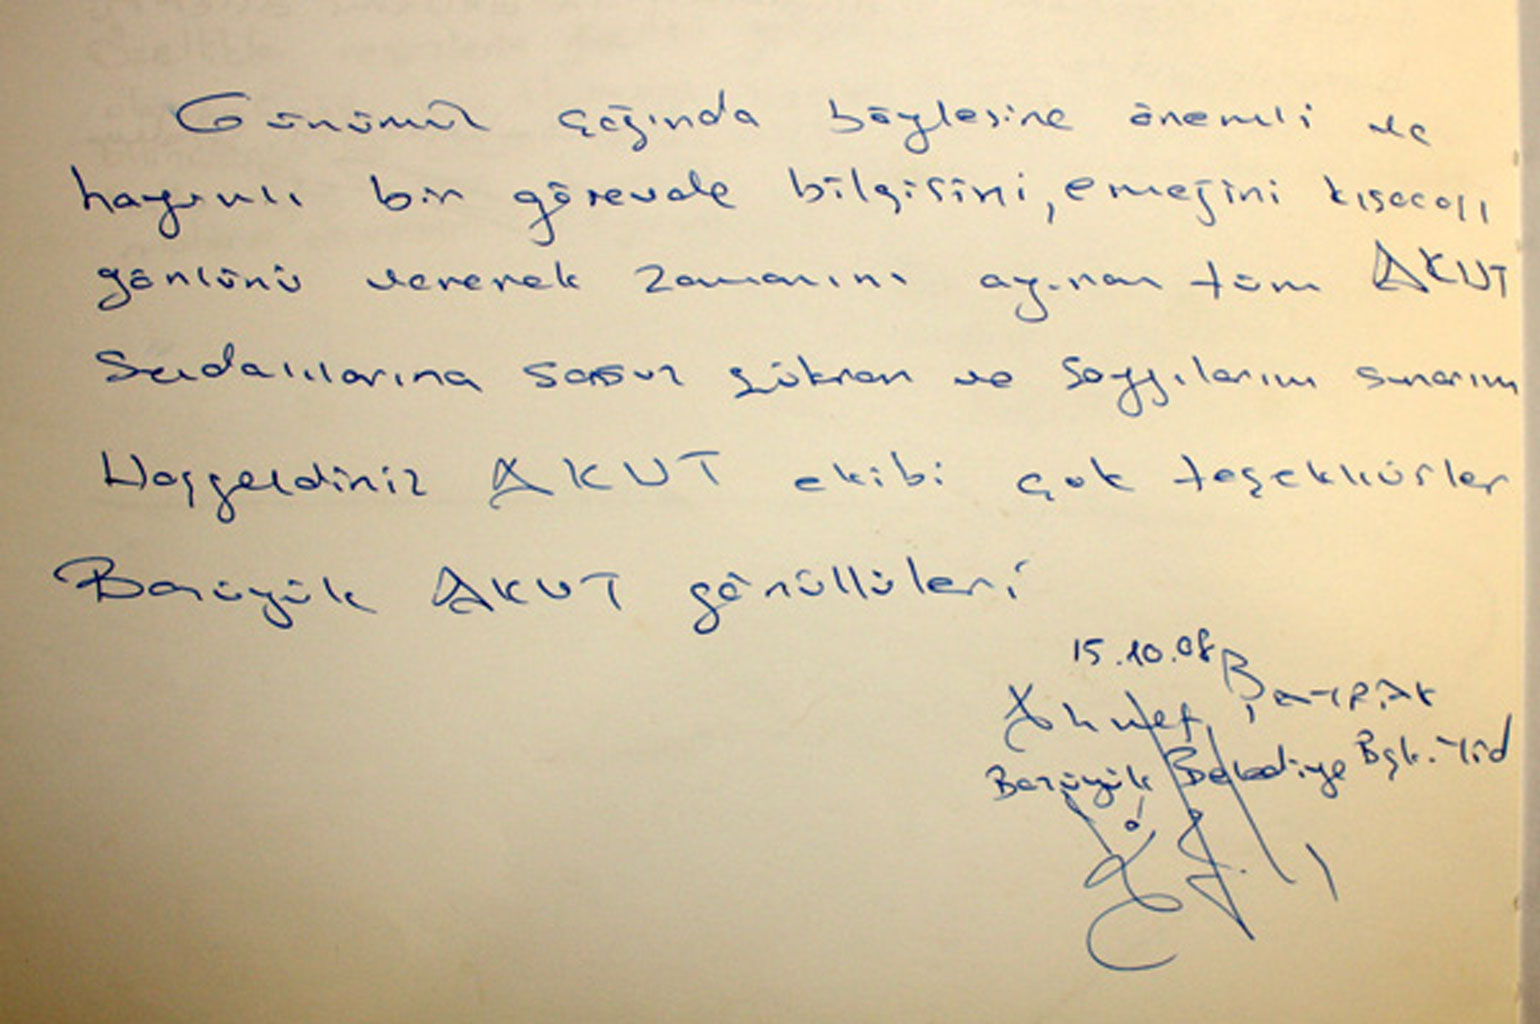 Günümüz çağında böylesine önemli ve
hayırılı bir görevde bilgisini, emeğini kısacası
gönlünü vererek zamanını ayıran tüm AKUT
Sevdalılarına sonsuz şükran ve Saygılarım sunarım
Hoşgeldiniz AKUT ekibi çok teşekkürler
Bozüyük AKUT gönüllüleri
15.10.08
Ahmet
Bozüyük Belediye Bşk. Yrd